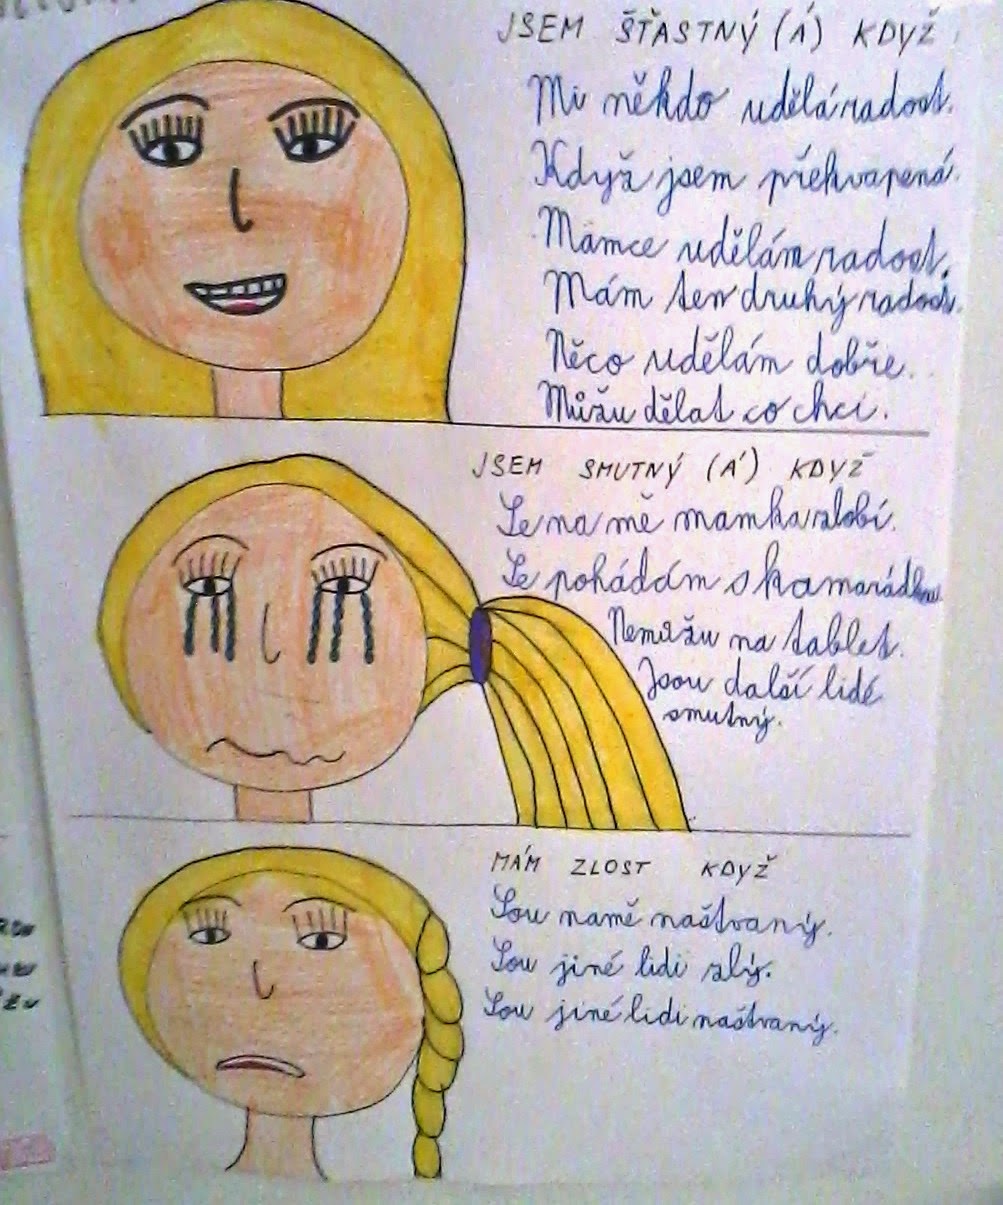 JSEM ŠŤASTNÝ (Á) KDYŽ
Mi někdo udělá radost.
Když jsem přehvapená.
Mamce udělám radost.
Mám ten druhý radost.
Něco udělám dobře.
Můžu dělat co chci.
JSEM SMUTNÝ (Á) KDYŽ
Se na mě mamka zlobí.
Se pohádám s kamarádkou
Nemůžu na tablet.
Jsou další lidé
smutný.
MÁM ZLOST KDYŽ
Sou namě naštvaný.
Sou jiné lidi zlý.
Sou jiné lidi naštvaný.